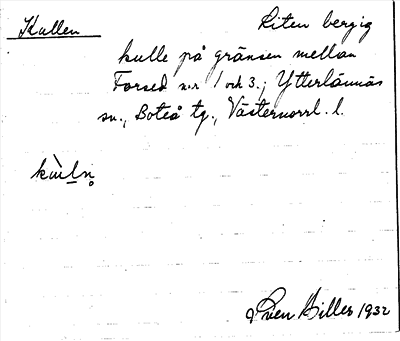 Kullen Liten bergig
kulle på gränsen mellan
Forsed n:r 1 och 3.; Ytterlännäs
sn., Boteå tg., Västernorrl. l.
kùl̥n̥
Sven Billes 1932